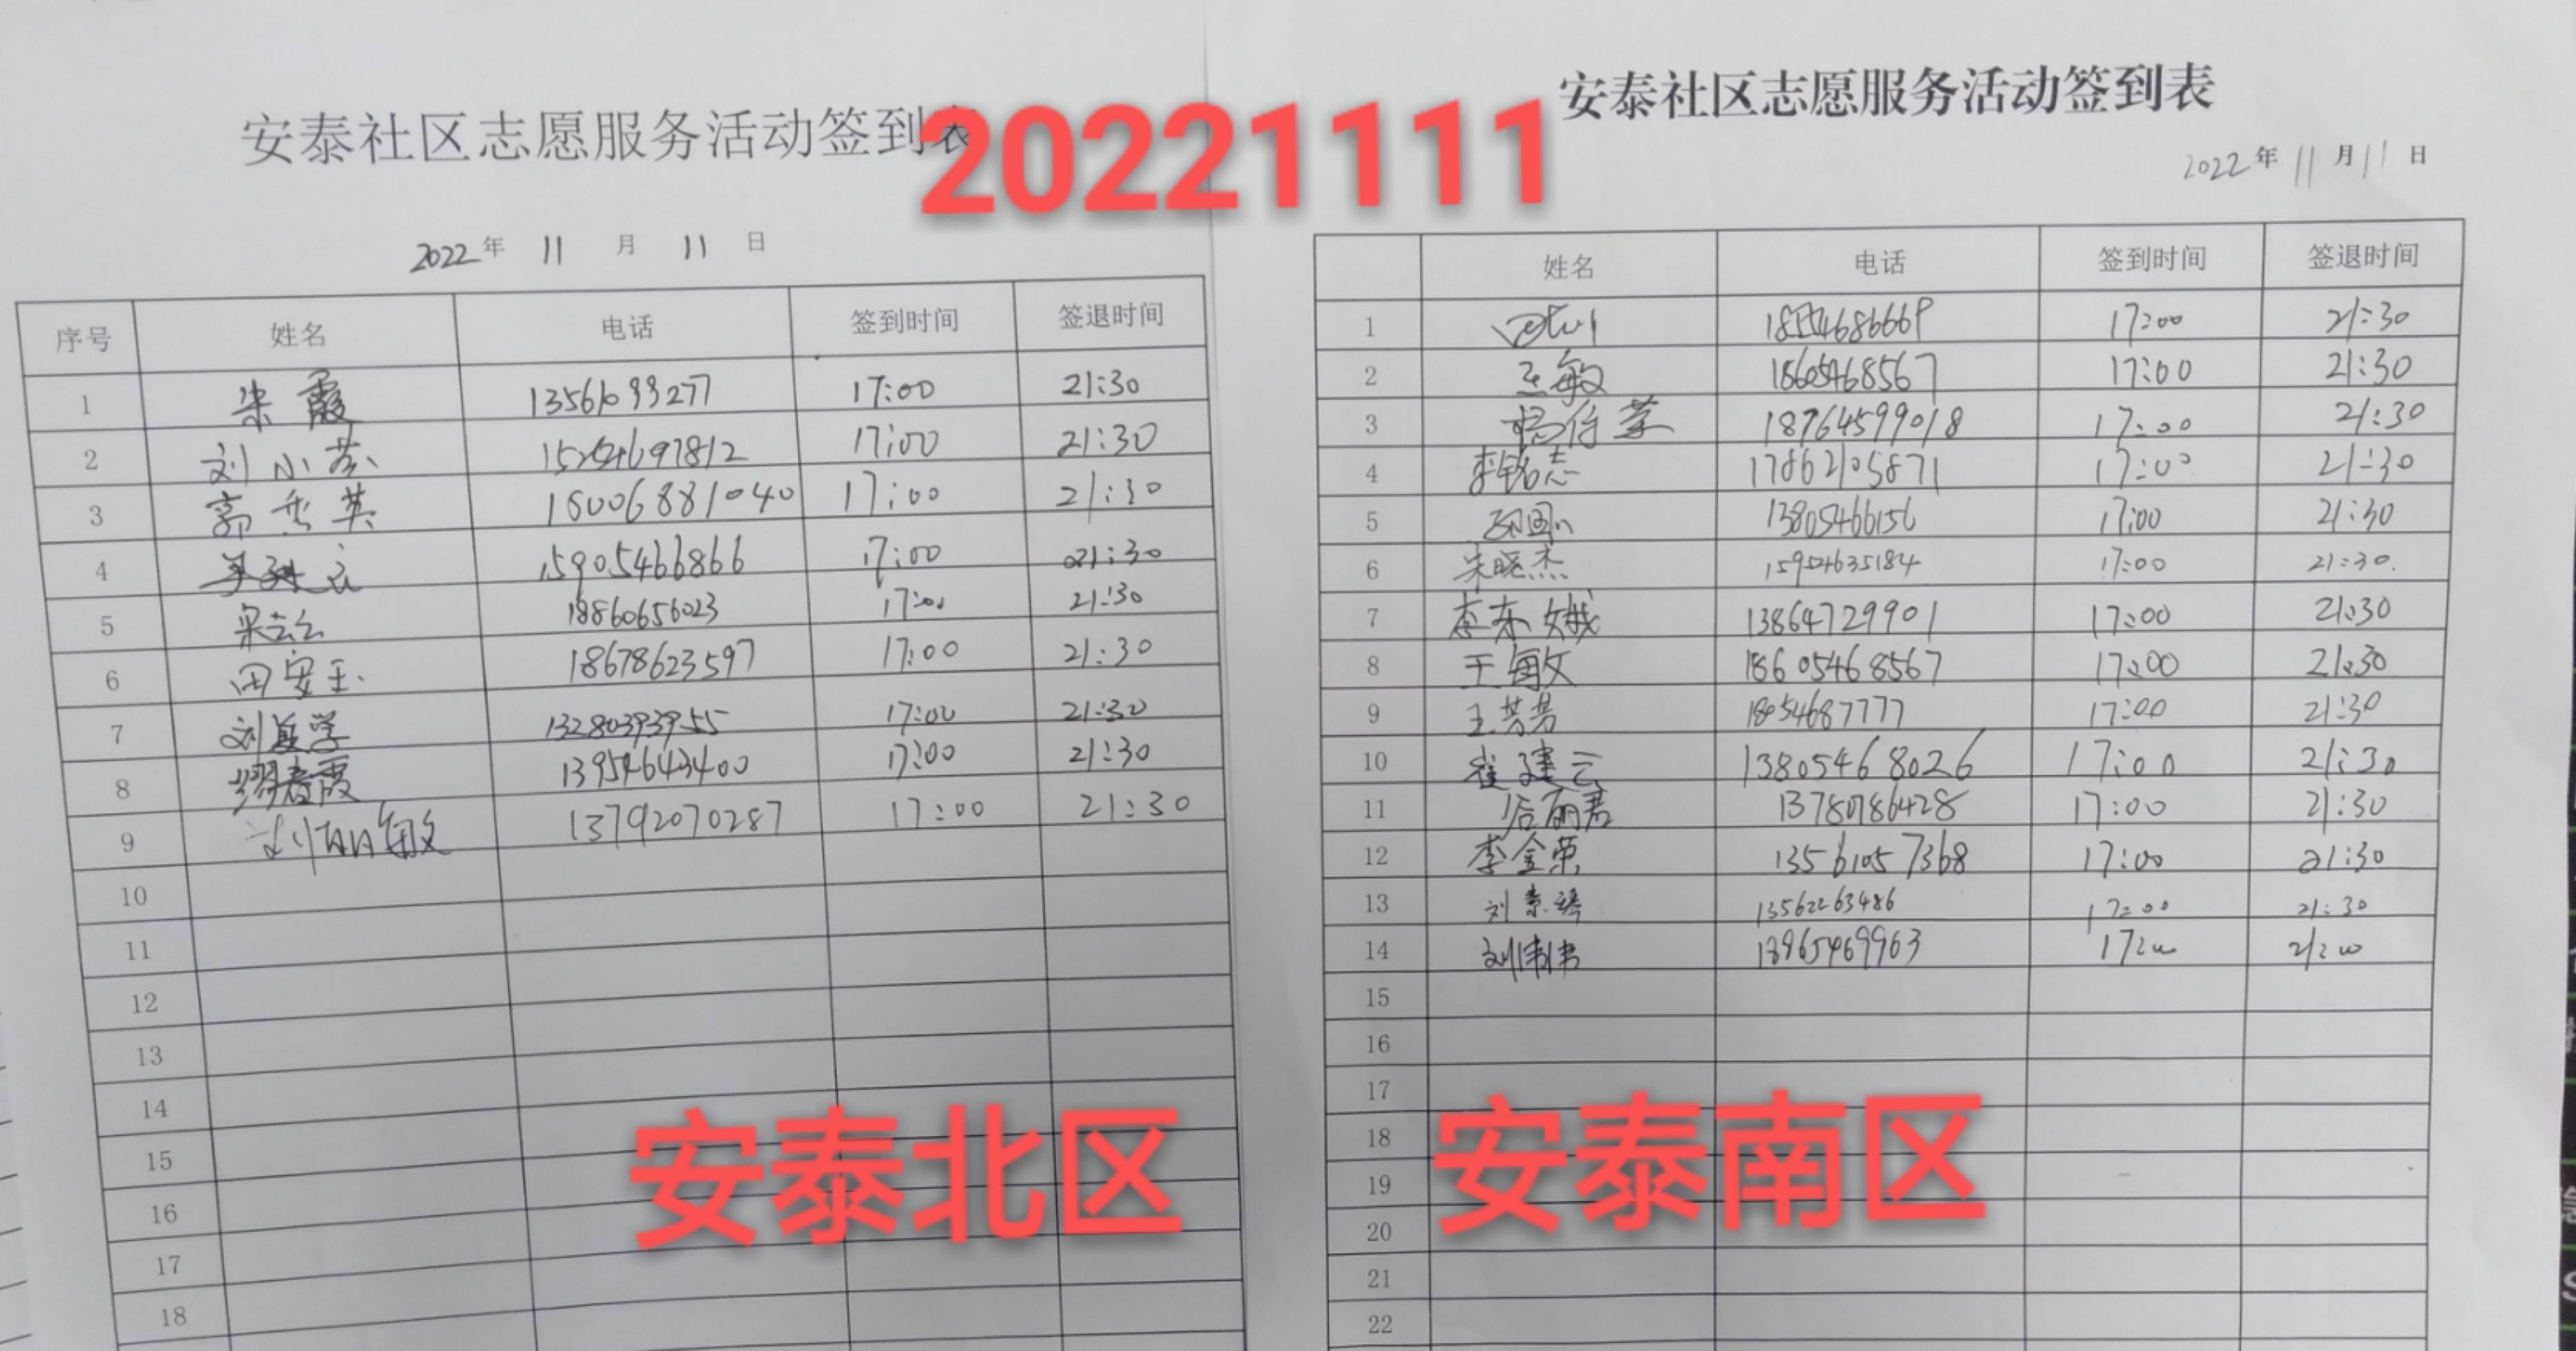 20221111
安泰社区志愿服务活动签到表
2022年 11 月 11 日
序号 姓名 电话 签到时间 签退时间
1 朱霞 13561099277 17:00 21:30
2 刘小芬 15254697812 17:00 21:30
3 郭秀英 18006881040 17:00 21:30
4 15905466866 17:00 21:30
5 18860656023 17:00 21:30
6 田安玉 18678623597 17:00 21:30
7 刘益学 13280393955 17:00 21:30
8 缪春霞 13954643400 17:00 21:30
9 刘丽敏 13792070287 17:00 21:30
10
11
12
13
14
15
16
17
18
安泰北区
安泰社区志愿服务活动签到表
2022年 11 月 11 日
姓名 电话 签到时间 签退时间
1 18554686669 17:00 21:30
2 王敏 18605468567 17:00 21:30
3 18764599018 17:00 21:30
4 李铭志 17862105871 17:00 21:30
5 13805466156 17:00 21:30
6 宋晓杰 15954635184 17:00 21:30
7 李东娥 13864729901 17:00 21:30
8 王敏 18605468567 17:00 21:30
9 王芳芳 18054687777 17:00 21:30
10 崔建云 13805468026 17:00 21:30
11 后丽君 13780786428 17:00 21:30
12 李金荣 13561057368 17:00 21:30
13 刘素琴 13562263486 17:00 21:30
14 刘伟伟 13965469963
15
16
17
18
19
20
21
22
安泰南区